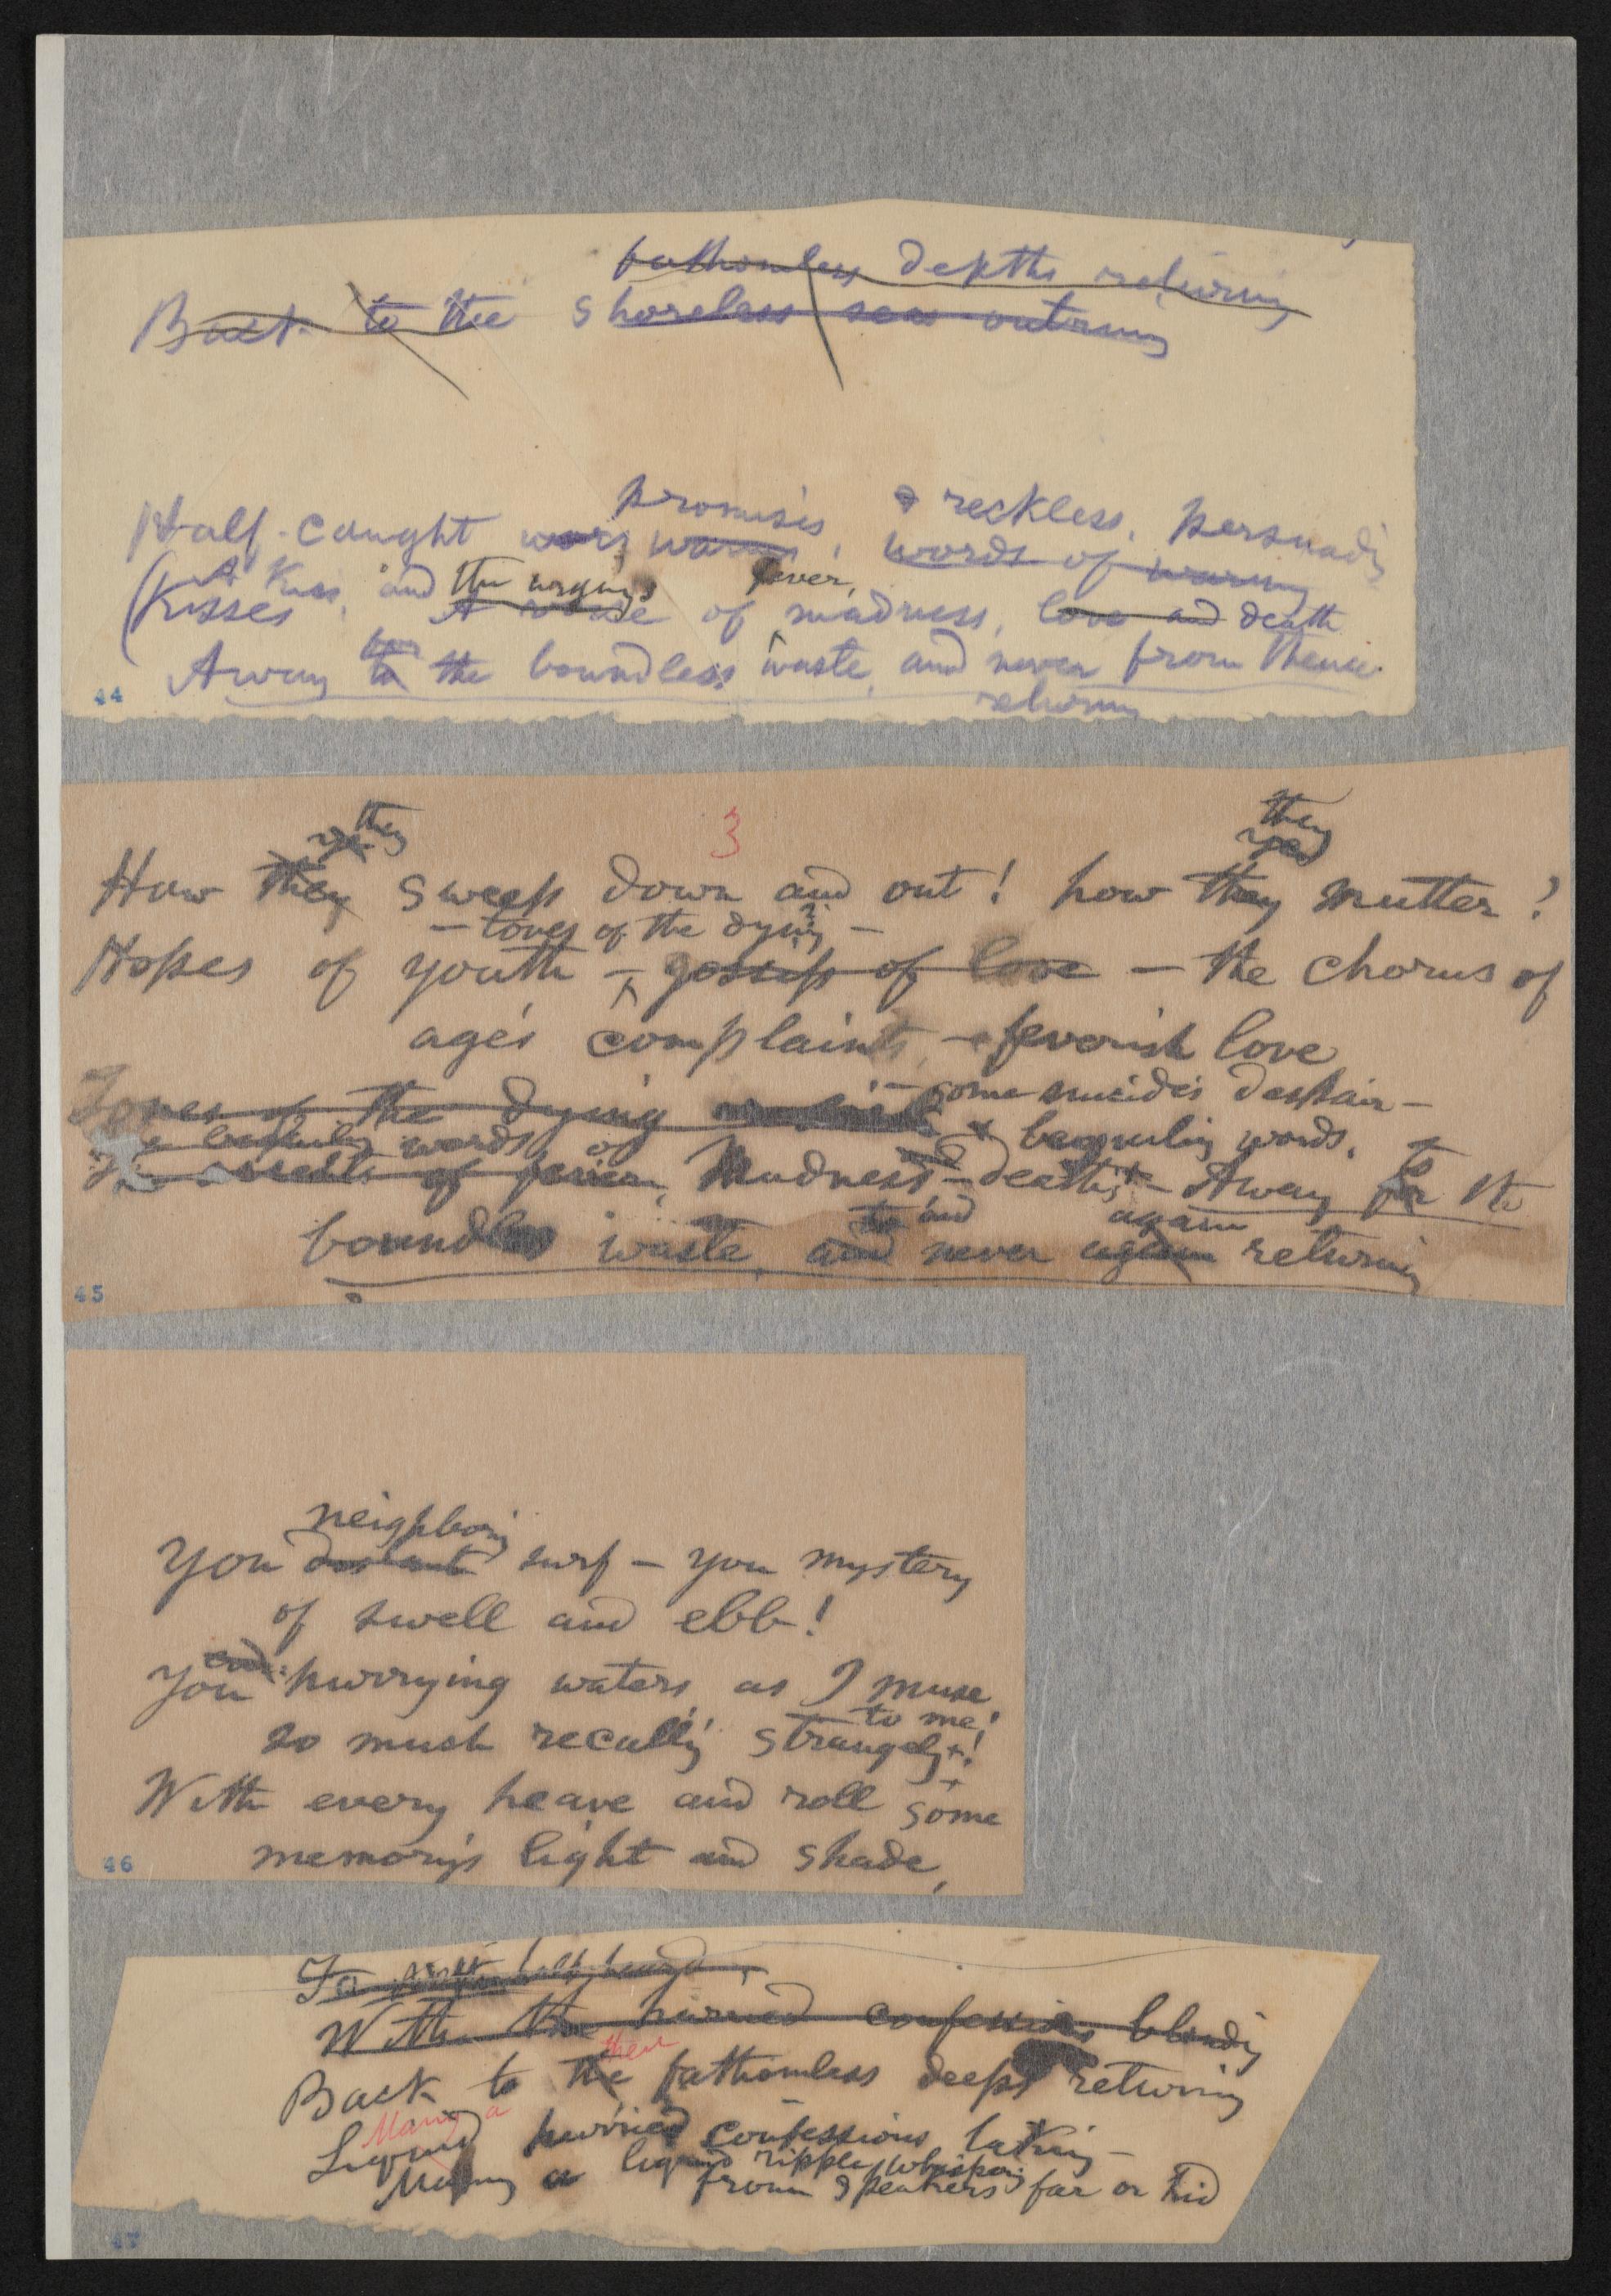 fathomless depths returning
Back to the shoreless sea outrunning
promises & reckless, persuading
Half-caught words of warning
A Kiss, and the urging fever,
(Kisses A voice of madness, love and death
Away to the boundless waste, and never from thence
returning
44
3
they they
How they sweep down and out! how they mutter?
— tones of the dying —
Hopes of youth — gossip of love — the chorus of
age's complaints — feverish love
— some suicide's despair —
Tones of the dying
beguiling words of & beguiling words,
Madness — death — Away to the
and again
boundless waste, and never again returning
45
neighboring
You distant surf — you mystery
of swell and ebb!
You hurrying waters, as I muse
to me!
so much recall'g strangely!
With every heave and roll some
memory's light and shade,
46
half heard,
With the hurried confession blending
their
Back to the fathomless deeps returning
Many a
Liquid hurried confessions taking —
Many a liquid ripple, whispering
from speakers far or hid
47